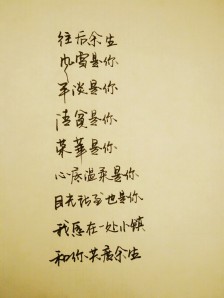 往后余生
风雪是你
平淡是你
清贫是你
荣华是你
心底温柔是你
目光所至也是你
我愿在一处小镇
和你共度余生